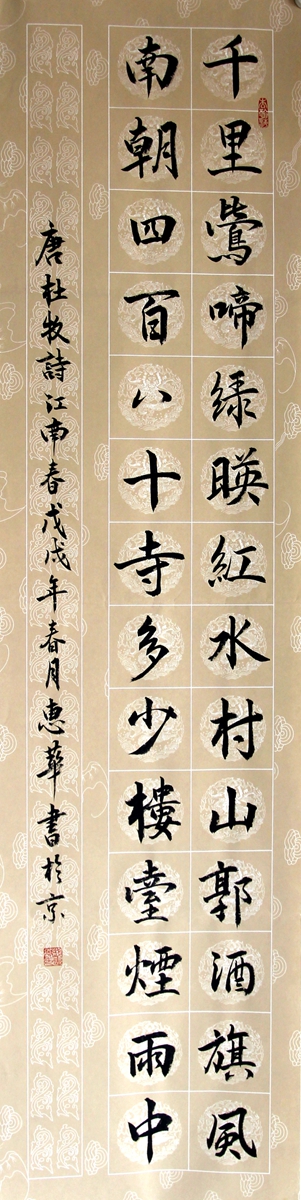 千里鶯啼緑暎紅水村山郭酒旗風
南朝四百八十寺多少樓臺煙雨中
唐杜牧詩江南春戊戌年春月惠華書於京